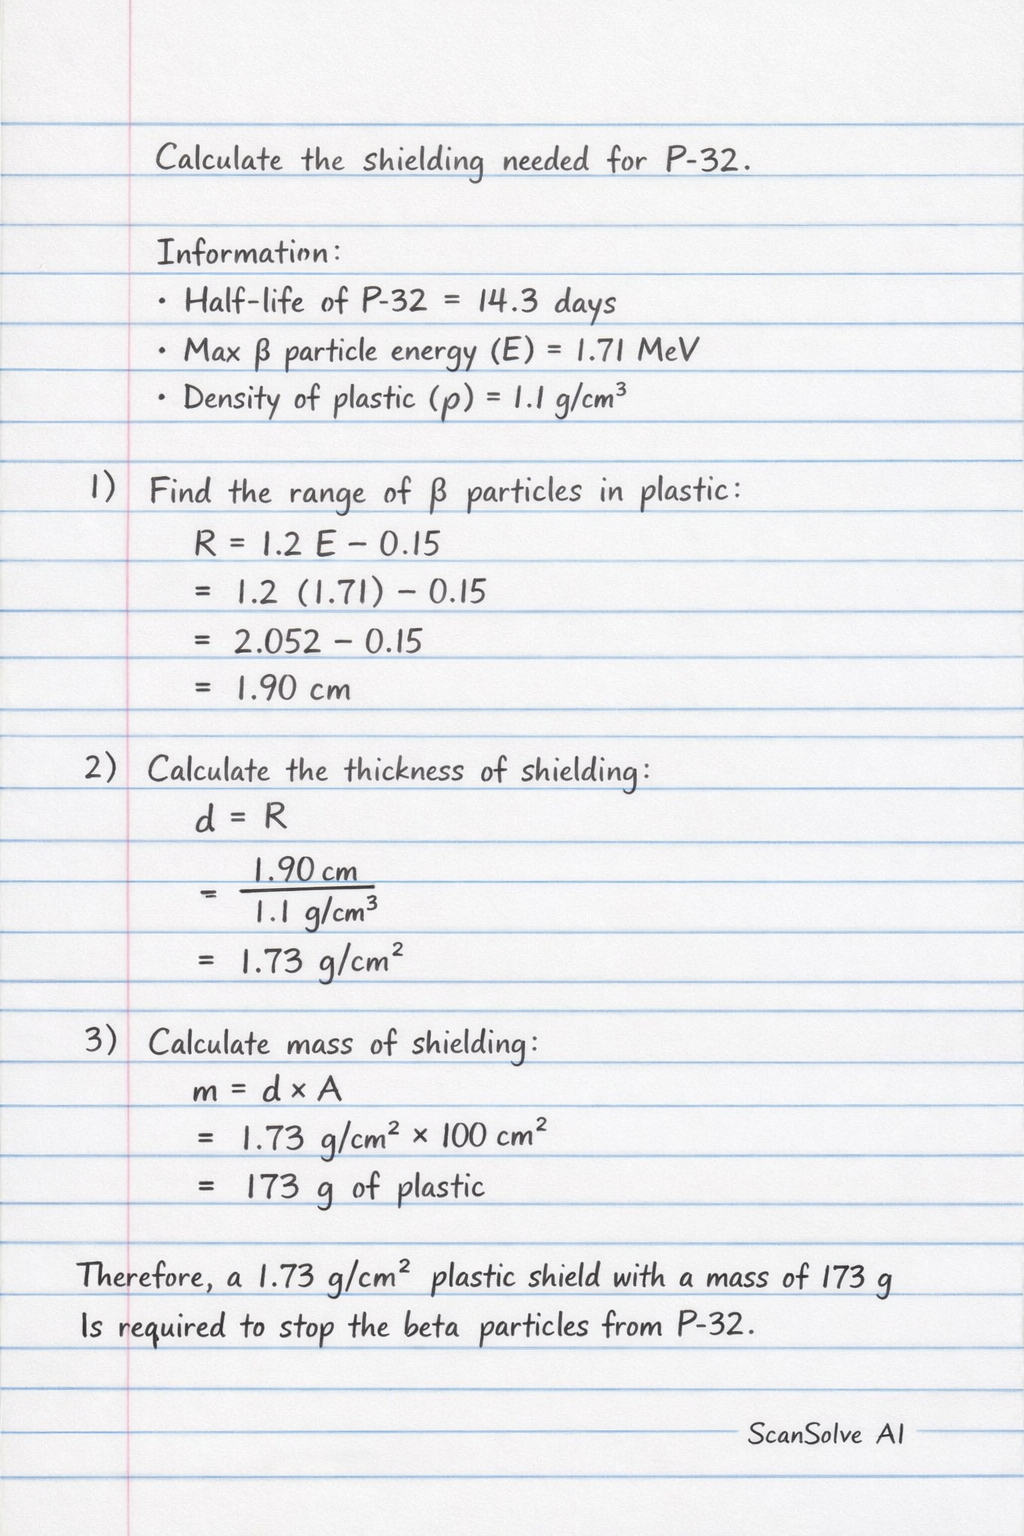 Calculate the shielding needed for P-32.
Information:
• Half-life of P-32 = 14.3 days
• Max β particle energy (E) = 1.71 MeV
• Density of plastic (ρ) = 1.1 g/cm³
1) Find the range of β particles in plastic:
R = 1.2 E – 0.15
= 1.2 (1.71) – 0.15
= 2.052 – 0.15
= 1.90 cm
2) Calculate the thickness of shielding:
d = R
= 1.90 cm
1.1 g/cm³
= 1.73 g/cm²
3) Calculate mass of shielding:
m = d × A
= 1.73 g/cm² × 100 cm²
= 173 g of plastic
Therefore, a 1.73 g/cm² plastic shield with a mass of 173 g
Is required to stop the beta particles from P-32.
ScanSolve AI